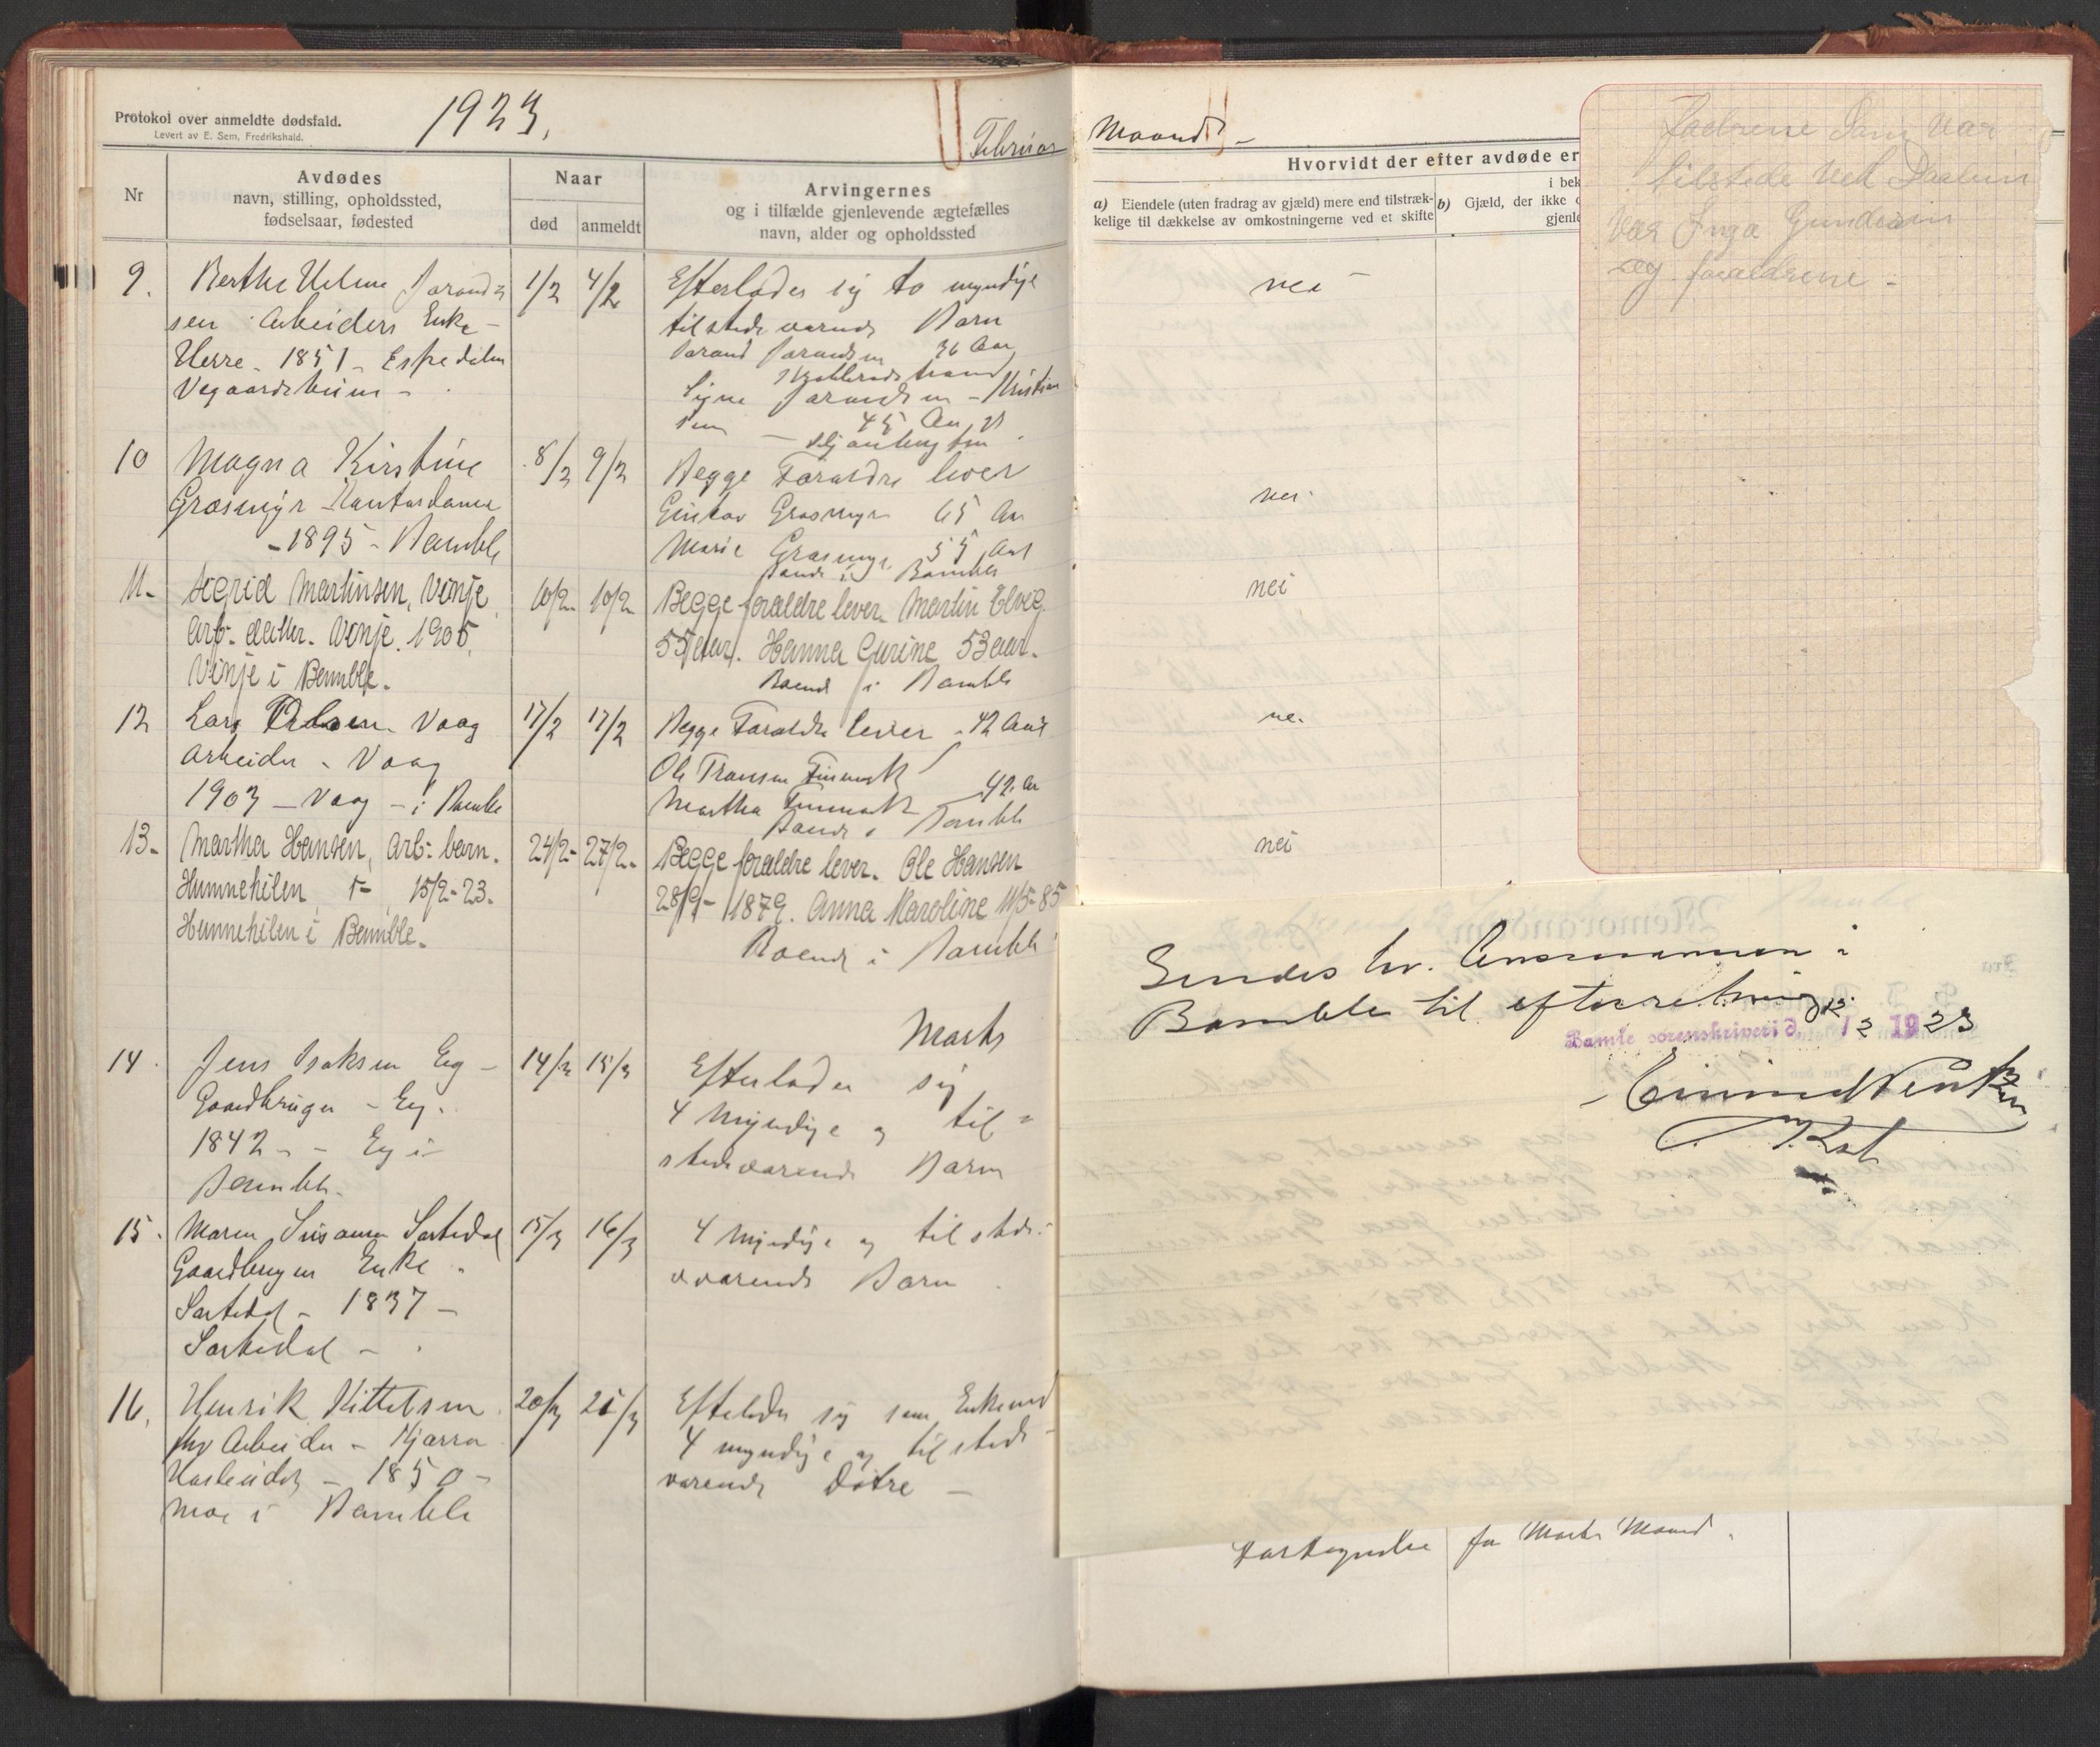 Protokol over anmeldte dødsfald.
Levert av E. Sem, Fredrikshald.
1923.
Februar
Maaned
Nr
Avdødes
navn, stilling, opholdssted,
fødselsaar, fødested
Naar
død
anmeldt
Arvingernes
og i tilfælde gjenlevende ægtefælles
navn, alder og opholdssted
Hvorvidt der efter avdøde er
a) Eiendele (uten fradrag av gjæld) mere end tilstræk-
kelige til dækkelse av omkostningerne ved et skifte
i bek
b) Gjæld, der ikke
gjenle
9.
Berthe Helene
sen Arbeiders Enke -
Herre - 1851 - Espedalen
Vegaardsheim -
1/2
4/2
Efterlader sig to myndige
tilstedeværende Børn
36 Aar
Signe - Kristian
sen - 45 Aar
nei
10
Magna Kirstine
Grasmyr Kontordame
- 1895 - Bamble
8/2
9/2
Begge Forældre lever
Gustav Grasmyr 65 Aar
Marie Grasmyr 55 Aar
Boende i Bamble
nei
11.
Sigrid Martinsen, Vinje
Arb. datter. Vinje. 1905.
Vinje i Bamble.
10/2
10/2
Begge forældre lever. Martin Elveg.
55 aar. Hanna Gurine 53 aar.
Boende i Bamble
nei
12
Lars Olsen Vaag
Arbeider - Vaag
1903 - Vaag - i Bamble
17/2
17/2
Begge Forældre lever - 42 Aar
Ole Fransen Finmark
Martha Finmark 42 Aar
Boende i Bamble
nei
13.
Martha Hansen, Arb. barn.
Hummekilen, f- 15/2-23.
Hummekilen i Bamble.
24/2-
27/2-
Begge forældre lever. Ole Hansen
28/9-1879. Anna Karoline 11/5-85
Boende i Bamble
nei
Marts
14.
Jens Isaksen Eeg -
Gaardbruger - Eeg.
1842 - - Eeg i
Bamble.
14/3
15/3
Efterlader sig
4 Myndige og til-
stedeværende Børn
15.
Maren Susanne Sartedal
Gaardbrugers Enke.
Sartedal - 1837 -
Sartedal -
15/3
16/3
4 Myndige og tilstede-
værende Børn.
16.
Henrik Kittelsen
Arbeider -
- 1850 -
Moe i Bamble
20/3
21/3
Efterlader sig som Enkemand
4 myndige og tilstede-
værende Døtre -
tilstede ved
var Inga Gundersen
og forældrene -
Sendes hr. lensmannen i
Bamble til efterretning
Bamle sorenskriveri d. 12/2 1923
for Marts Maaned.